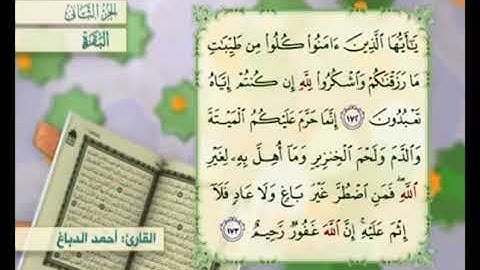 الجزء الثاني
البقرة
يَٰٓأَيُّهَا ٱلَّذِينَ ءَامَنُوا۟ كُلُوا۟ مِن طَيِّبَٰتِ
مَا رَزَقْنَٰكُمْ وَٱشْكُرُوا۟ لِلَّهِ إِن كُنتُمْ إِيَّاهُ
تَعْبُدُونَ ١٧٢ إِنَّمَا حَرَّمَ عَلَيْكُمُ ٱلْمَيْتَةَ
وَٱلدَّمَ وَلَحْمَ ٱلْخِنزِيرِ وَمَآ أُهِلَّ بِهِۦ لِغَيْرِ
ٱللَّهِ ۖ فَمَنِ ٱضْطُرَّ غَيْرَ بَاغٍ وَلَا عَادٍ فَلَآ
إِثْمَ عَلَيْهِ ۚ إِنَّ ٱللَّهَ غَفُورٌ رَّحِيمٌ ١٧٣
القارئ: أحمد الدباغ